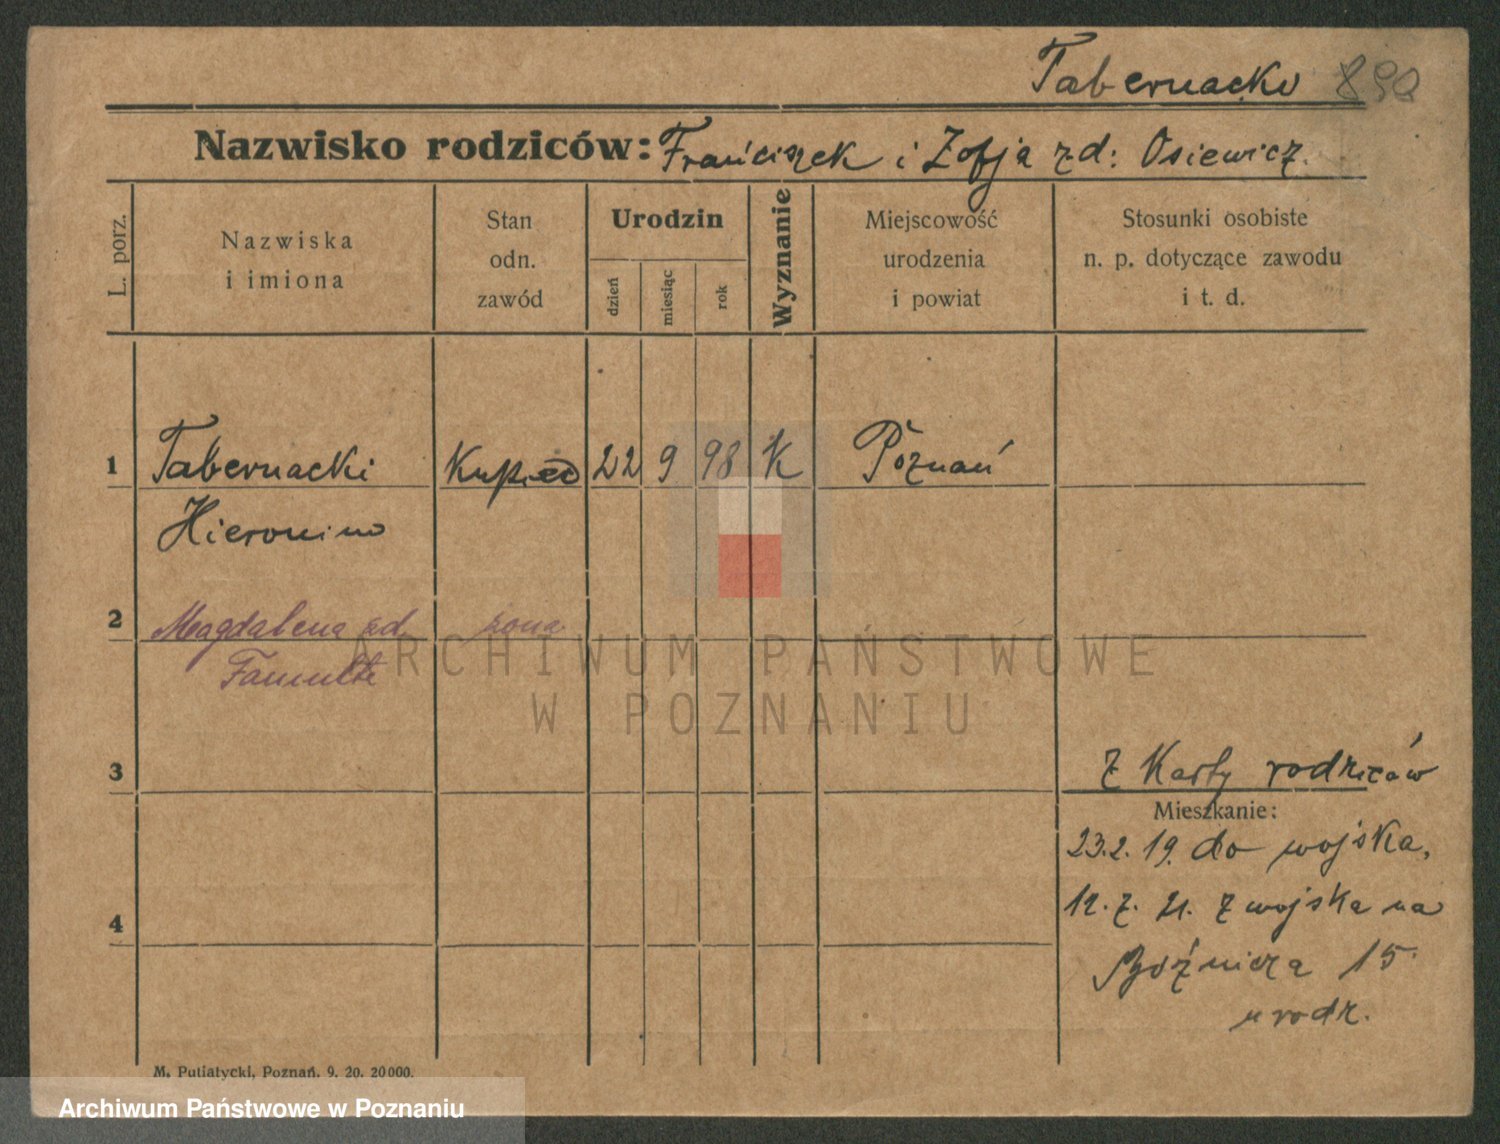 Tabernacki 890
Nazwisko rodziców: Franciszek i Zofja zd: Osiewicz.
L. porz.
Nazwiska
i imiona
Stan
odn.
zawód
Urodzin
dzień
miesiąc
rok
Wyznanie
Miejscowość
urodzenia
i powiat
Stosunki osobiste
n. p. dotyczące zawodu
i t. d.
1 Tabernacki Kupiec 22 9 98 K Poznań
Hieronim
2 Magdalena zd. żona
ARCHIWUM PAŃSTWOWE
W POZNANIU
3 z Karty rodziców
Mieszkanie:
23.2.19. do wojska,
12.7.21. z wojska na
4
Bóźnicza 15
u rodz.
M. Putiatycki, Poznań. 9. 20. 20000.
Archiwum Państwowe w Poznaniu